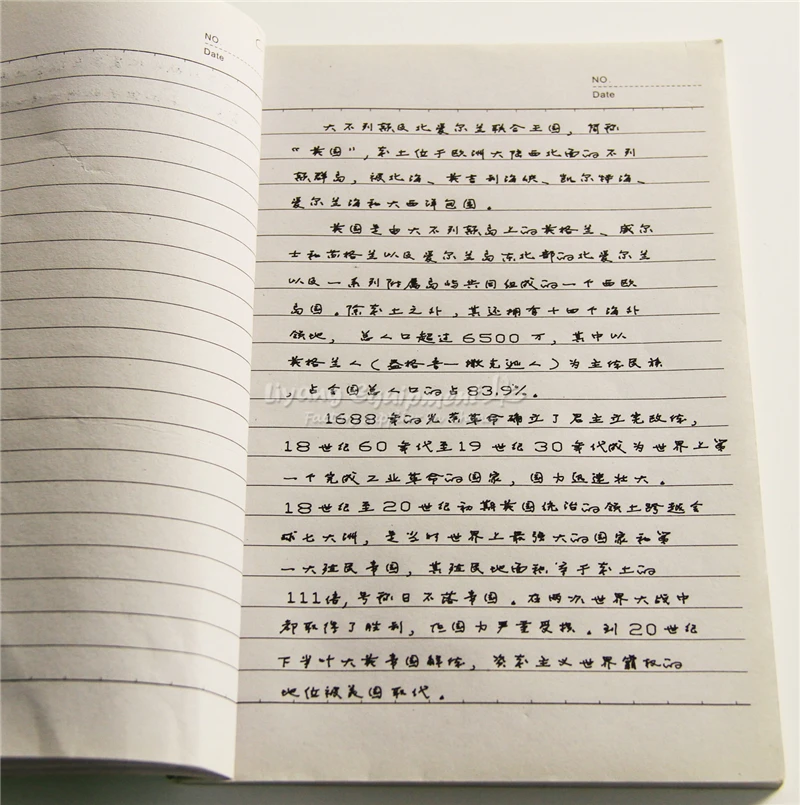 NO
Date
NO
Date
大不列颠及北爱尔兰联合王国，简称
“英国”，本土位于欧洲大陆西北面的不列
颠群岛，被北海、英吉利海峡、凯尔特海、
爱尔兰海和大西洋包围。
英国是由大不列颠岛上的英格兰、威尔
士和苏格兰以及爱尔兰岛东北部的北爱尔兰
以及一系列附属岛屿共同组成的一个西欧
岛国。除本土之外，其还拥有十四个海外
领地，总人口超过6500万，其中以
英格兰人（盎格鲁一撒克逊人）为主体民族
，占全国总人口的占83.9%。
1688年的光荣革命确立了君主立宪政体，
18世纪60年代至19世纪30年代成为世界上第
一个完成工业革命的国家，国力迅速壮大。
18世纪至20世纪初期英国统治的领土跨越全
球七大洲，是当时世界上最强大的国家和第
一大殖民帝国，其殖民地面积等于本土的
111倍，号称日不落帝国。在两次世界大战中
都取得了胜利，但国力严重受损。到20世纪
下半叶大英帝国解体，资本主义世界霸权的
地位被美国取代。
Liyang Equipment